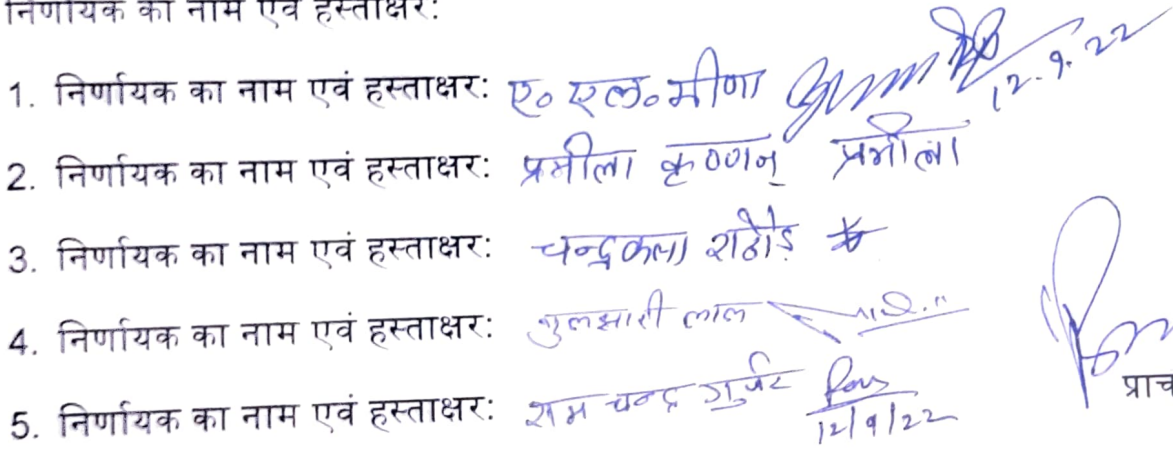 निर्णायक का नाम एवं हस्ताक्षर:
1. निर्णायक का नाम एवं हस्ताक्षर: ए॰ एल॰ मीणा 12.9.22
2. निर्णायक का नाम एवं हस्ताक्षर: प्रमीला कृष्णन् प्रमीला
3. निर्णायक का नाम एवं हस्ताक्षर: चन्द्रकला राठौड़
4. निर्णायक का नाम एवं हस्ताक्षर: गुलझारी लाल
5. निर्णायक का नाम एवं हस्ताक्षर: राम चन्द्र गुर्जर 12/9/22
प्राच